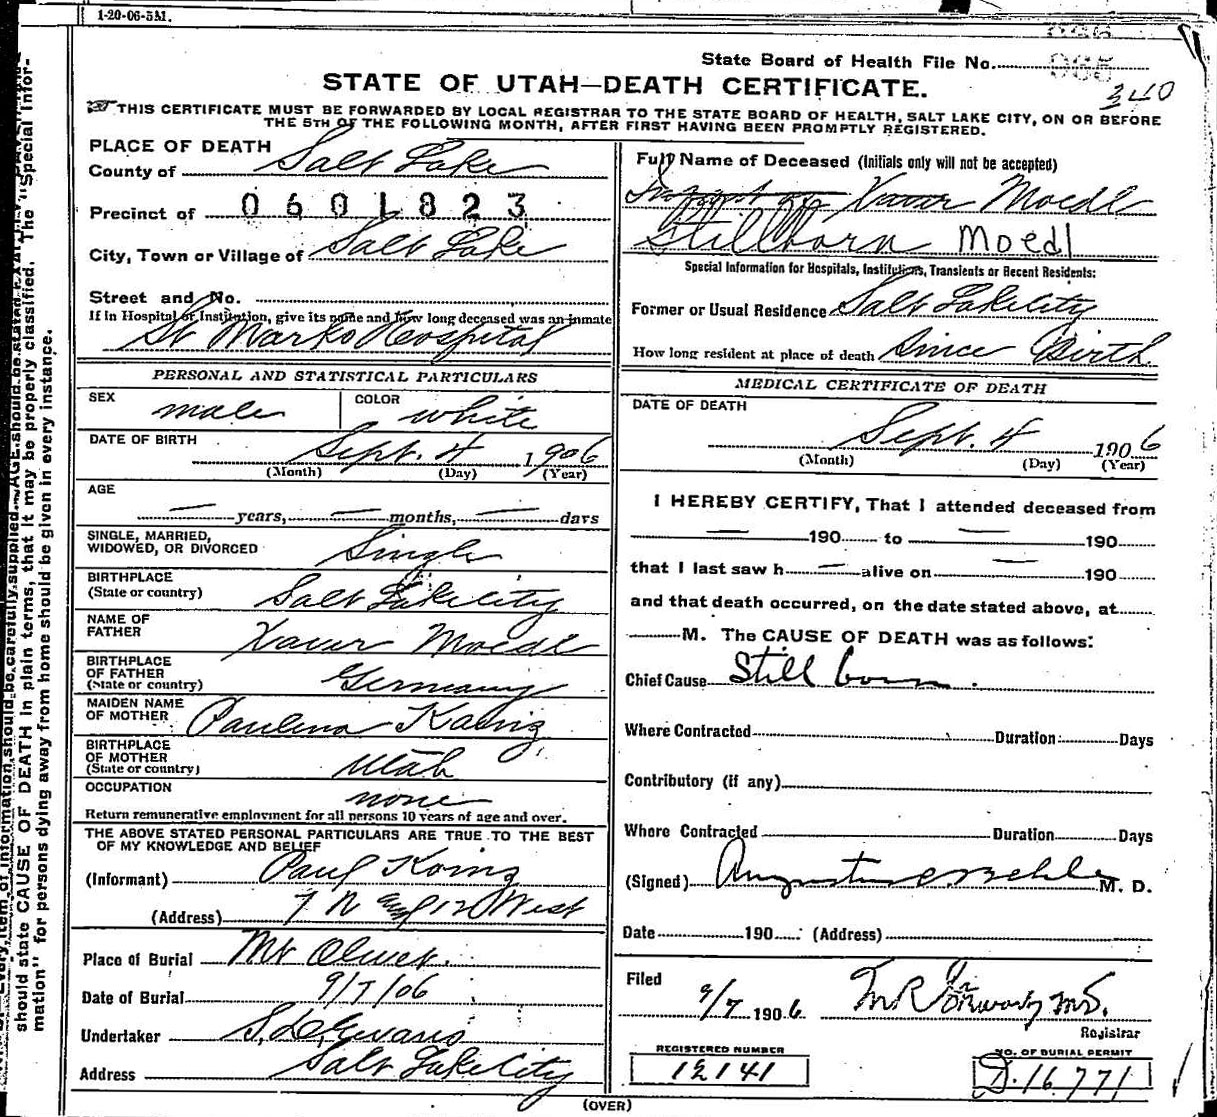 1-20-06-5M.
State Board of Health File No. 985
340
STATE OF UTAH—DEATH CERTIFICATE.
THIS CERTIFICATE MUST BE FORWARDED BY LOCAL REGISTRAR TO THE STATE BOARD OF HEALTH, SALT LAKE CITY, ON OR BEFORE
THE 5TH OF THE FOLLOWING MONTH, AFTER FIRST HAVING BEEN PROMPTLY REGISTERED.
PLACE OF DEATH
County of Salt Lake
Precinct of 0601823
City, Town or Village of Salt Lake
Street and No.
If in Hospital or Institution, give its name and how long deceased was an inmate
St Marks Hospital
PERSONAL AND STATISTICAL PARTICULARS
SEX male COLOR white
DATE OF BIRTH
Sept. 4 1906
(Month) (Day) (Year)
AGE
— years, — months, — days
SINGLE, MARRIED,
WIDOWED, OR DIVORCED Single
BIRTHPLACE
(State or country) Salt Lake City
NAME OF
FATHER Xavar Moedl
BIRTHPLACE
OF FATHER
(State or country) Germany
MAIDEN NAME
OF MOTHER Paulina
BIRTHPLACE
OF MOTHER
(State or country) Utah
OCCUPATION none
Return remunerative employment for all persons 10 years of age and over.
THE ABOVE STATED PERSONAL PARTICULARS ARE TRUE TO THE BEST
OF MY KNOWLEDGE AND BELIEF
(Informant) Paul
(Address) 7 N 12 West
Place of Burial Mt Olivet.
Date of Burial 9/7/06
Undertaker S. d. Evans
Address Salt Lake City
Full Name of Deceased (Initials only will not be accepted)
Infant of Xavar Moedl
Stillborn Moedl
Special Information for Hospitals, Institutions, Transients or Recent Residents:
Former or Usual Residence Salt Lake City
How long resident at place of death Since Birth.
MEDICAL CERTIFICATE OF DEATH
DATE OF DEATH
Sept. 4 1906
(Month) (Day) (Year)
I HEREBY CERTIFY, That I attended deceased from
— 190 to — 190
that I last saw h — alive on — 190
and that death occurred, on the date stated above, at
M. The CAUSE OF DEATH was as follows:
Chief Cause Still born.
Where Contracted Duration Days
Contributory (if any)
Where Contracted Duration Days
(Signed) M. D.
Date 190 (Address)
Filed
9/7 1906
Registrar
REGISTERED NUMBER
12141
NO. OF BURIAL PERMIT
D.16771
(OVER)
Every item of information should be carefully supplied. AGE should be stated EXACTLY.
should state CAUSE OF DEATH in plain terms, that it may be properly classified. The "Special Infor-
mation" for persons dying away from home should be given in every instance.